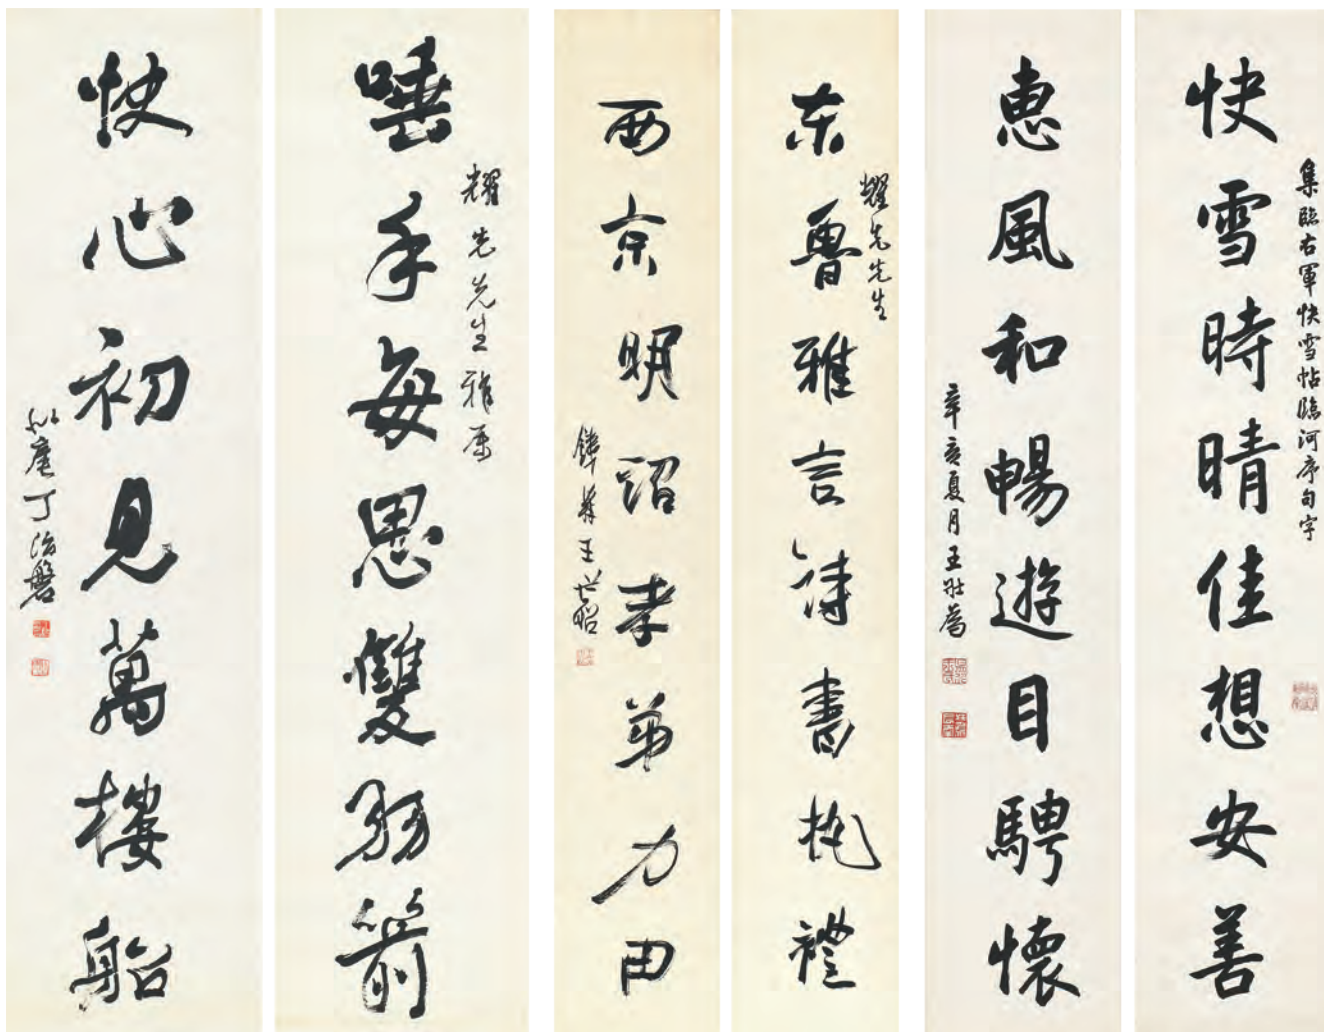 集臨右軍快雪帖臨河序句字
快雪時晴佳想安善
惠風和暢遊目騁懷
辛亥夏月王壯為
耀先先生
东魯雅言詩書执禮
西京明詔孝弟力田
鏵 王世昭
耀先先生雅属
唾手每思雙羽箭
快心初見萬樓船
似庵丁治磐